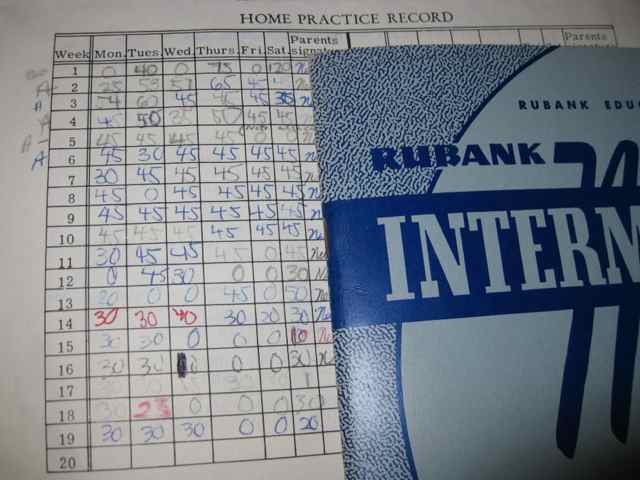 HOME PRACTICE RECORD
Week Mon. Tues. Wed. Thurs. Fri. Sat. Parents Parents
1 0 40 0 75 0 120
2 65 45
3 60 45 45 45 30
4 45 50 45 45
5 45 45 45 45 0
A 6 45 30 45 45 45 45
7 30 45 45 45 45 45
8 45 0 45 45 45 45
9 45 45 45 45 45 45
10 45 45 45 45 45 45
11 30 45 45 45 0 45
12 0 45 30 0 0 30
13 0 0 45 0
14 30 30 40 30 20 30
15 30 30 0 0 0 10
16 30 30 0 0 30
18 30 0 0 0 30
19 30 30 30 0 0 20
20
RUBANK EDU
RUBANK
INTERM